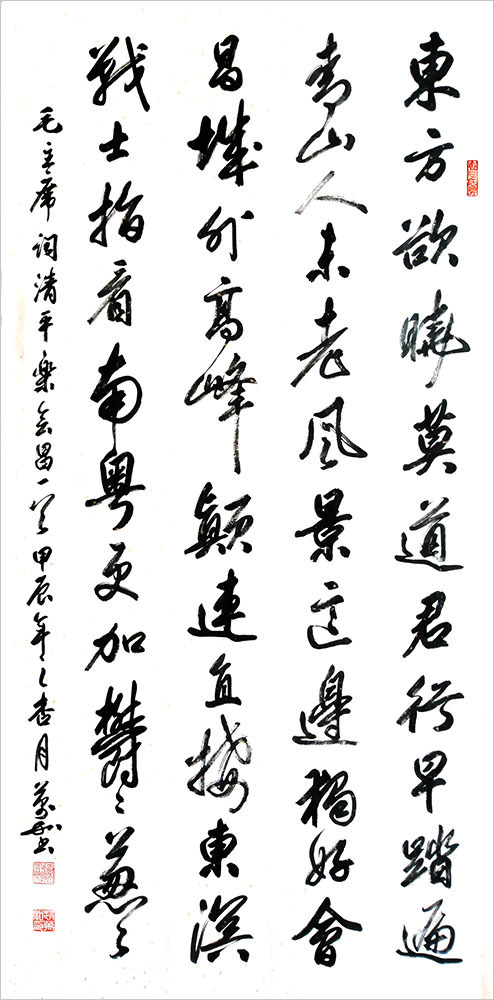 東方欲曉莫道君行早踏遍
青山人未老风景這邊獨好會
昌城外高峰顛連直接東溟
戰士指看南粵更加鬱〻葱〻
毛主席词清平樂会昌一首甲辰年之杏月